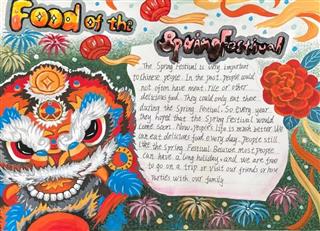 Food of the
Spring Festival
The Spring Festival is very important
to Chinese people. In the past, people could
not often have meat, rice or other
delicious food. They could only eat these
during the Spring Festival. So every year
they hoped that the Spring Festival would
come soon. Now, people's life is much better. We
can eat delicious food every day. People still
like the Spring Festival. Because most people
can have a long holiday, and we are free
to go on a trip or visit our friends or have
parties with our family.